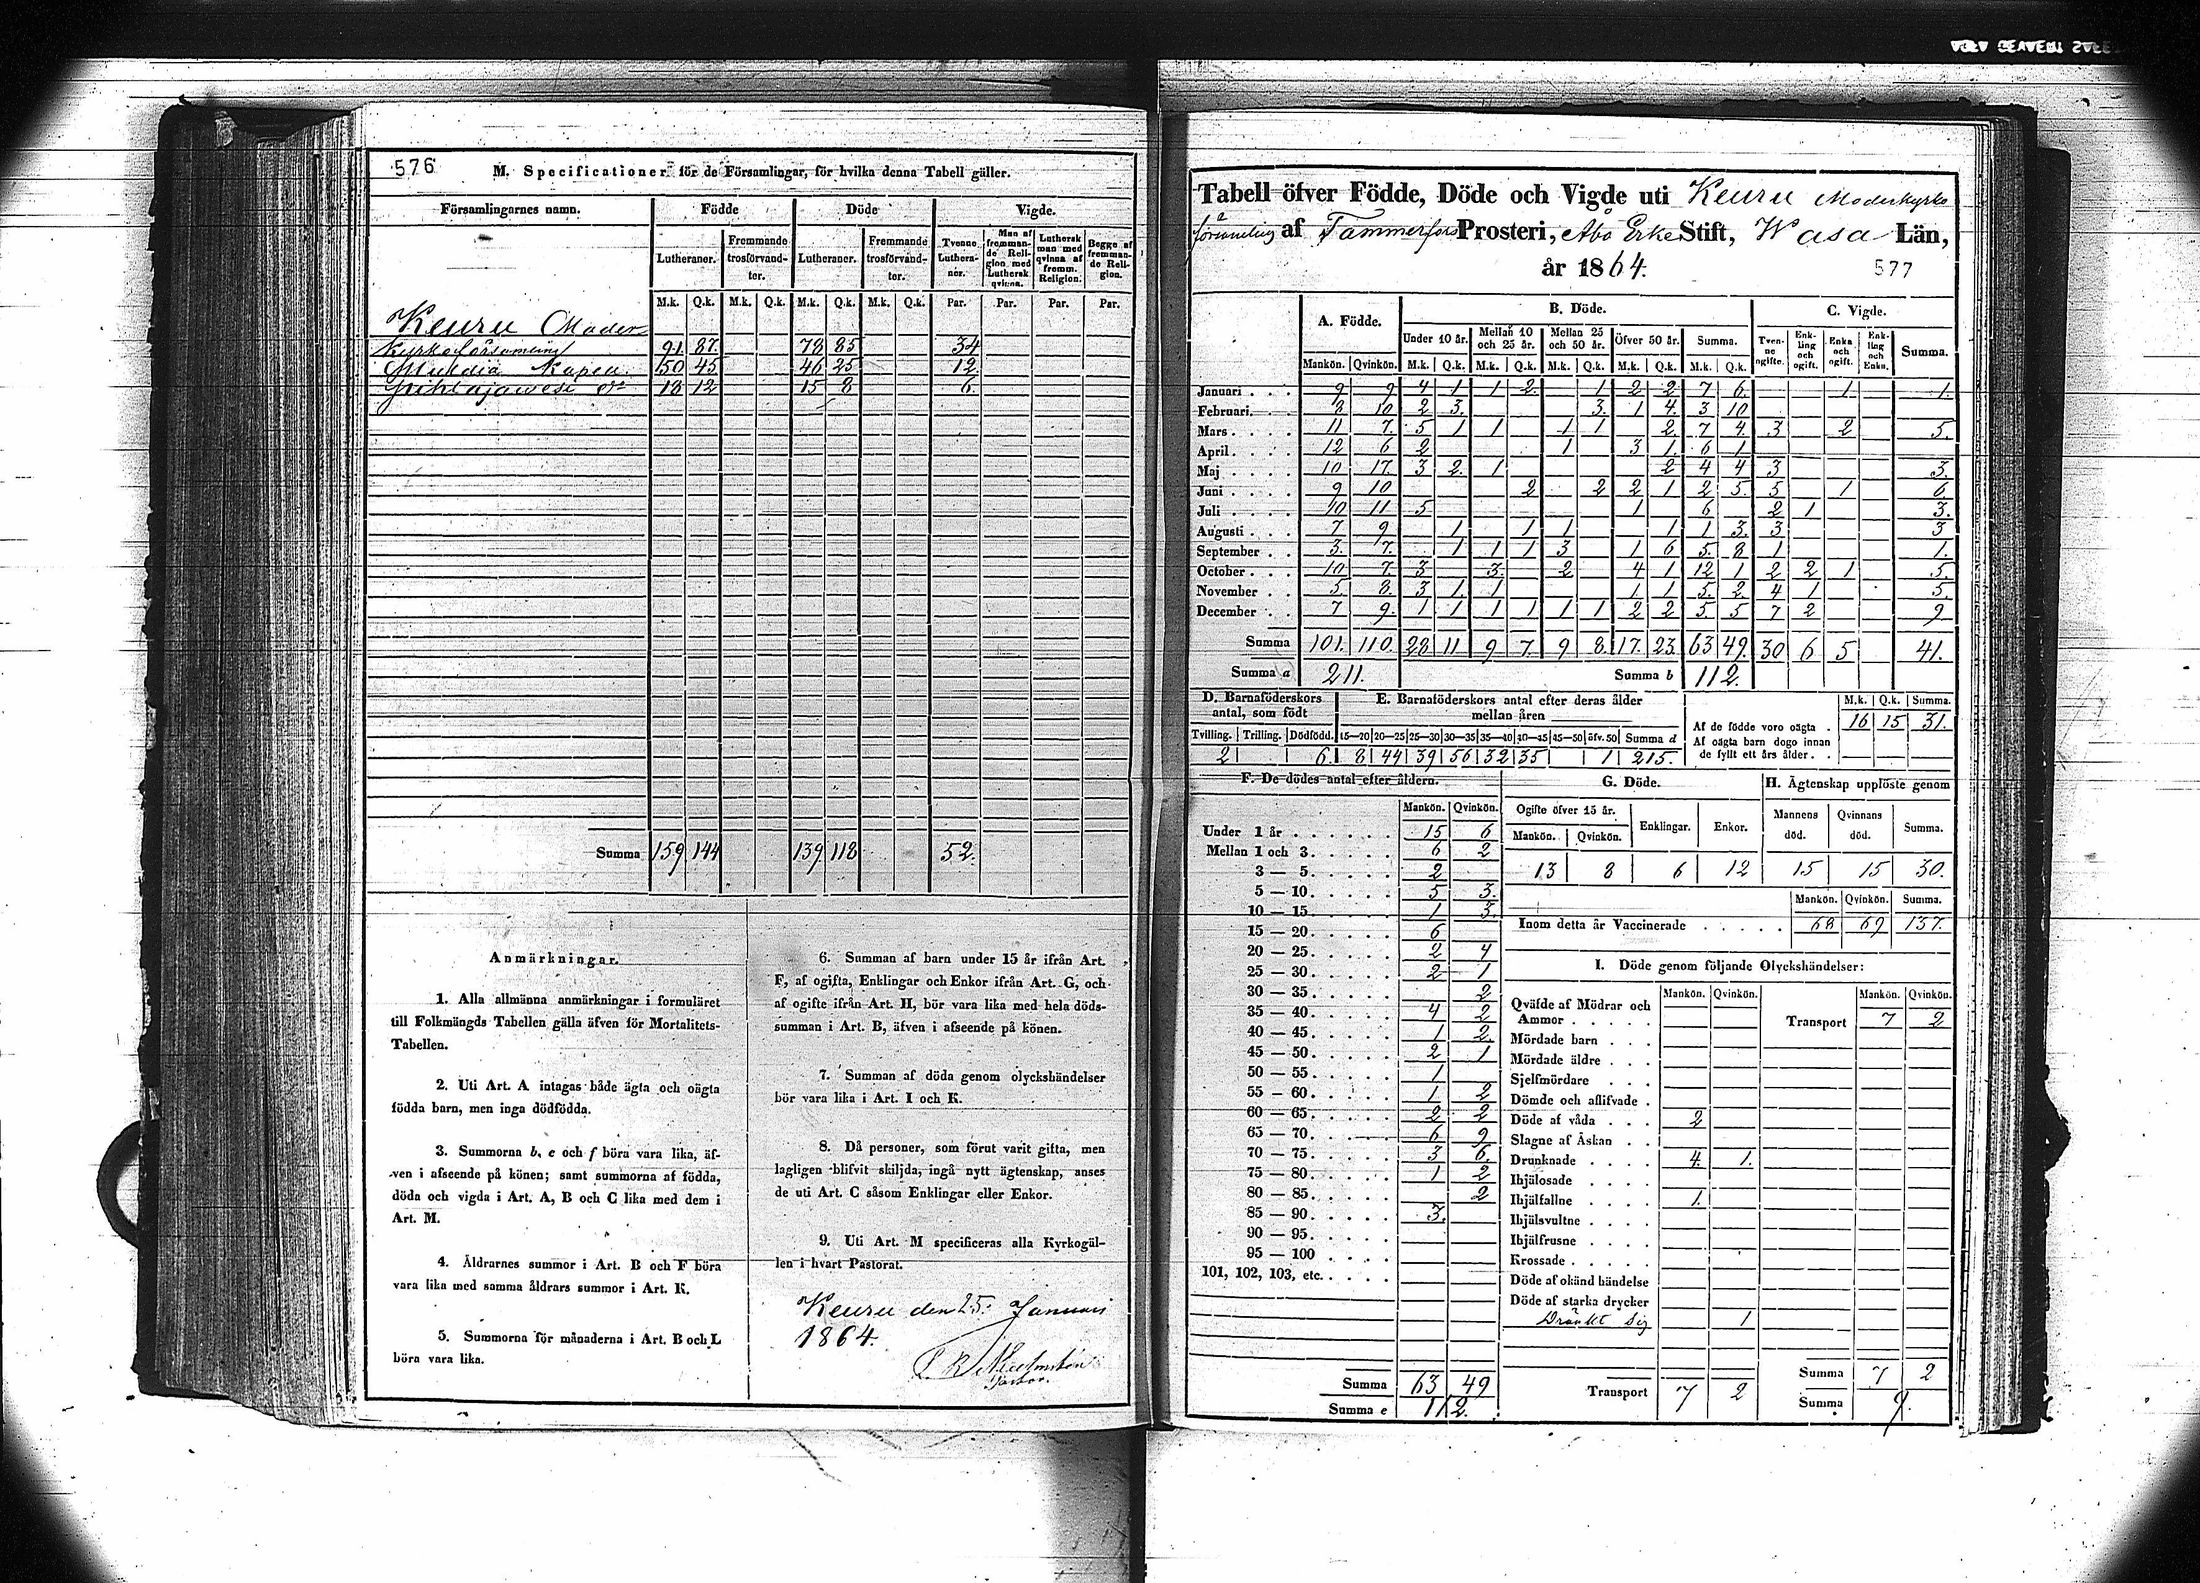 576
M. Specificationer för de Församlingar, för hvilka denna Tabell gäller.
Församlingarnes namn. Födde Döde Vigde.
Lutheraner. Fremmande trosförvandter. Lutheraner. Fremmande trosförvandter. Tvenne Lutheraner. Man af fremmande Religion med Luthersk qvinna. Luthersk man med qvinna af fremm. Religion. Begge af fremmande Religion.
M.k. Q.k. M.k. Q.k. M.k. Q.k. M.k. Q.k. Par. Par. Par. Par.
Keuru Moder
Kyrkoförsamling 91 87. 78 85 34
Multia Kapell. 50 45 46 25 12
Pihlajavesi d:o 18 12 15 8 6.
Summa 159 144 139 118 52.
Anmärkningar.
1. Alla allmänna anmärkningar i formuläret
till Folkmängds Tabellen gälla äfven för Mortalitets-
Tabellen.
2. Uti Art. A intagas både ägta och oägta
födda barn, men inga dödfödda.
3. Summorna b, e och f böra vara lika, äf-
ven i afseende på könen; samt summorna af födda,
döda och vigda i Art. A, B och C lika med dem i
Art. M.
4. Åldrarnes summor i Art. B och F böra
vara lika med samma åldrars summor i Art. K.
5. Summorna för månaderna i Art. B och L
böra vara lika.
6. Summan af barn under 15 år ifrån Art.
F, af ogifta, Enklingar och Enkor ifrån Art. G, och
af ogifte ifrån Art. H, bör vara lika med hela döds-
summan i Art. B, äfven i afseende på könen.
7. Summan af döda genom olyckshändelser
bör vara lika i Art. I och K.
8. Då personer, som förut varit gifta, men
lagligen blifvit skiljda, ingå nytt ägtenskap, anses
de uti Art. C såsom Enklingar eller Enkor.
9. Uti Art. M specificeras alla Kyrkogäl-
len i hvart Pastorat.
Keuru den 25. Januari
1864.
Pastor.
Tabell öfver Födde, Döde och Vigde uti Keuru Moderkyrko
församling af Tammerfors Prosteri, Åbo Erke Stift, Wasa Län,
år 1864.
577
A. Födde. B. Döde. C. Vigde.
Under 10 år. Mellan 10 och 25 år. Mellan 25 och 50 år. Öfver 50 år. Summa. Tvenne ogifte. Enkling och ogift. Enka och ogift. Enkling och Enka. Summa.
Mankön. Qvinkön. M.k. Q.k. M.k. Q.k. M.k. Q.k. M.k. Q.k. M.k. Q.k.
Januari . . . 9 9 4 1 1 2 1 2 2 7 6. 1 1.
Februari. . . 8 10 2 3. 3. 1 4. 3 10
Mars . . . . 11 7. 5 1 1 1 1 2. 7 4. 3 2 5.
April . . . . 12 6 2 1 3 1 6 1
Maj . . . . 10 17. 3 2. 1 2 4 4 3 3.
Juni . . . . 9 10 2 2 2 1 2 5. 5 1 6
Juli . . . . 10 11 5 1 6 2 1 3.
Augusti . . . 7 9. 1 1 1 1 1 3. 3 3
September . . 3. 7. 1 1 1 3 1 6 5. 8 1 1.
October . . . 10 7. 3 3. 2 4 1 12 1 2 2 1 5.
November . . 5 8. 3 1. 1 1 1 5. 2. 4 1 5.
December . . 7 9. 1 1 1 1 1 1 2 2 5. 5 7 2 9
Summa 101. 110. 28 11 9 7. 9 8. 17. 23. 63 49. 30 6 5 41.
Summa a 211. Summa b 112.
D. Barnaföderskors antal, som födt
Tvilling. Trilling. Dödfödd.
2 6.
E. Barnaföderskors antal efter deras ålder mellan åren
15—20 20—25 25—30 30—35 35—40 40—45 45—50 öfv. 50 Summa d
8 44 39 56 32 35 1 215.
M.k. Q.k. Summa.
Af de födde voro oägta . 16 15 31.
Af oägta barn dogo innan
de fyllt ett års ålder . .
F. De dödes antal efter åldern.
Mankön. Qvinkön.
Under 1 år . . . . . . 15 6
Mellan 1 och 3. . . . . 6 2
3 — 5. . . . . 2
5 — 10. . . . . 5 3.
10 — 15. . . . . 1 3.
15 — 20. . . . . 6
20 — 25. . . . . 2 4
25 — 30. . . . . 2 1
30 — 35. . . . . 2
35 — 40. . . . . 4 2
40 — 45. . . . . 1 2.
45 — 50. . . . . 2 1
50 — 55. . . . . 1
55 — 60. . . . . 1 2
60 — 65. . . . . 2 2
65 — 70. . . . . 6 9
70 — 75. . . . . 3 6.
75 — 80. . . . . 1 2
80 — 85. . . . . 2
85 — 90. . . . . 3.
90 — 95. . . . .
95 — 100 . . . .
101, 102, 103, etc. . . . .
Summa 63 49
Summa e 112.
G. Döde.
Ogifte öfver 15 år. Enklingar. Enkor.
Mankön. Qvinkön.
13 8 6 12
H. Ägtenskap upplöste genom
Mannens död. Qvinnans död. Summa.
15 15 30.
Mankön. Qvinkön. Summa.
Inom detta år Vaccinerade . . . . . 68 69 137.
I. Döde genom följande Olyckshändelser:
Mankön. Qvinkön. Mankön. Qvinkön.
Qväfde af Mödrar och
Ammor . . . . . Transport 7 2
Mördade barn . . .
Mördade äldre . . .
Sjelfmördare . . .
Dömde och aflifvade .
Döde af våda . . . 2
Slagne af Åskan . .
Drunknade . . . . 4. 1.
Ihjälosade . . . .
Ihjälfallne . . . . 1.
Ihjälsvultne . . . .
Ihjälfrusne . . . .
Krossade . . . . .
Döde af okänd händelse
Döde af starka drycker
Dränkt sig 1
Transport 7 2
Summa 7 2
Summa 9.